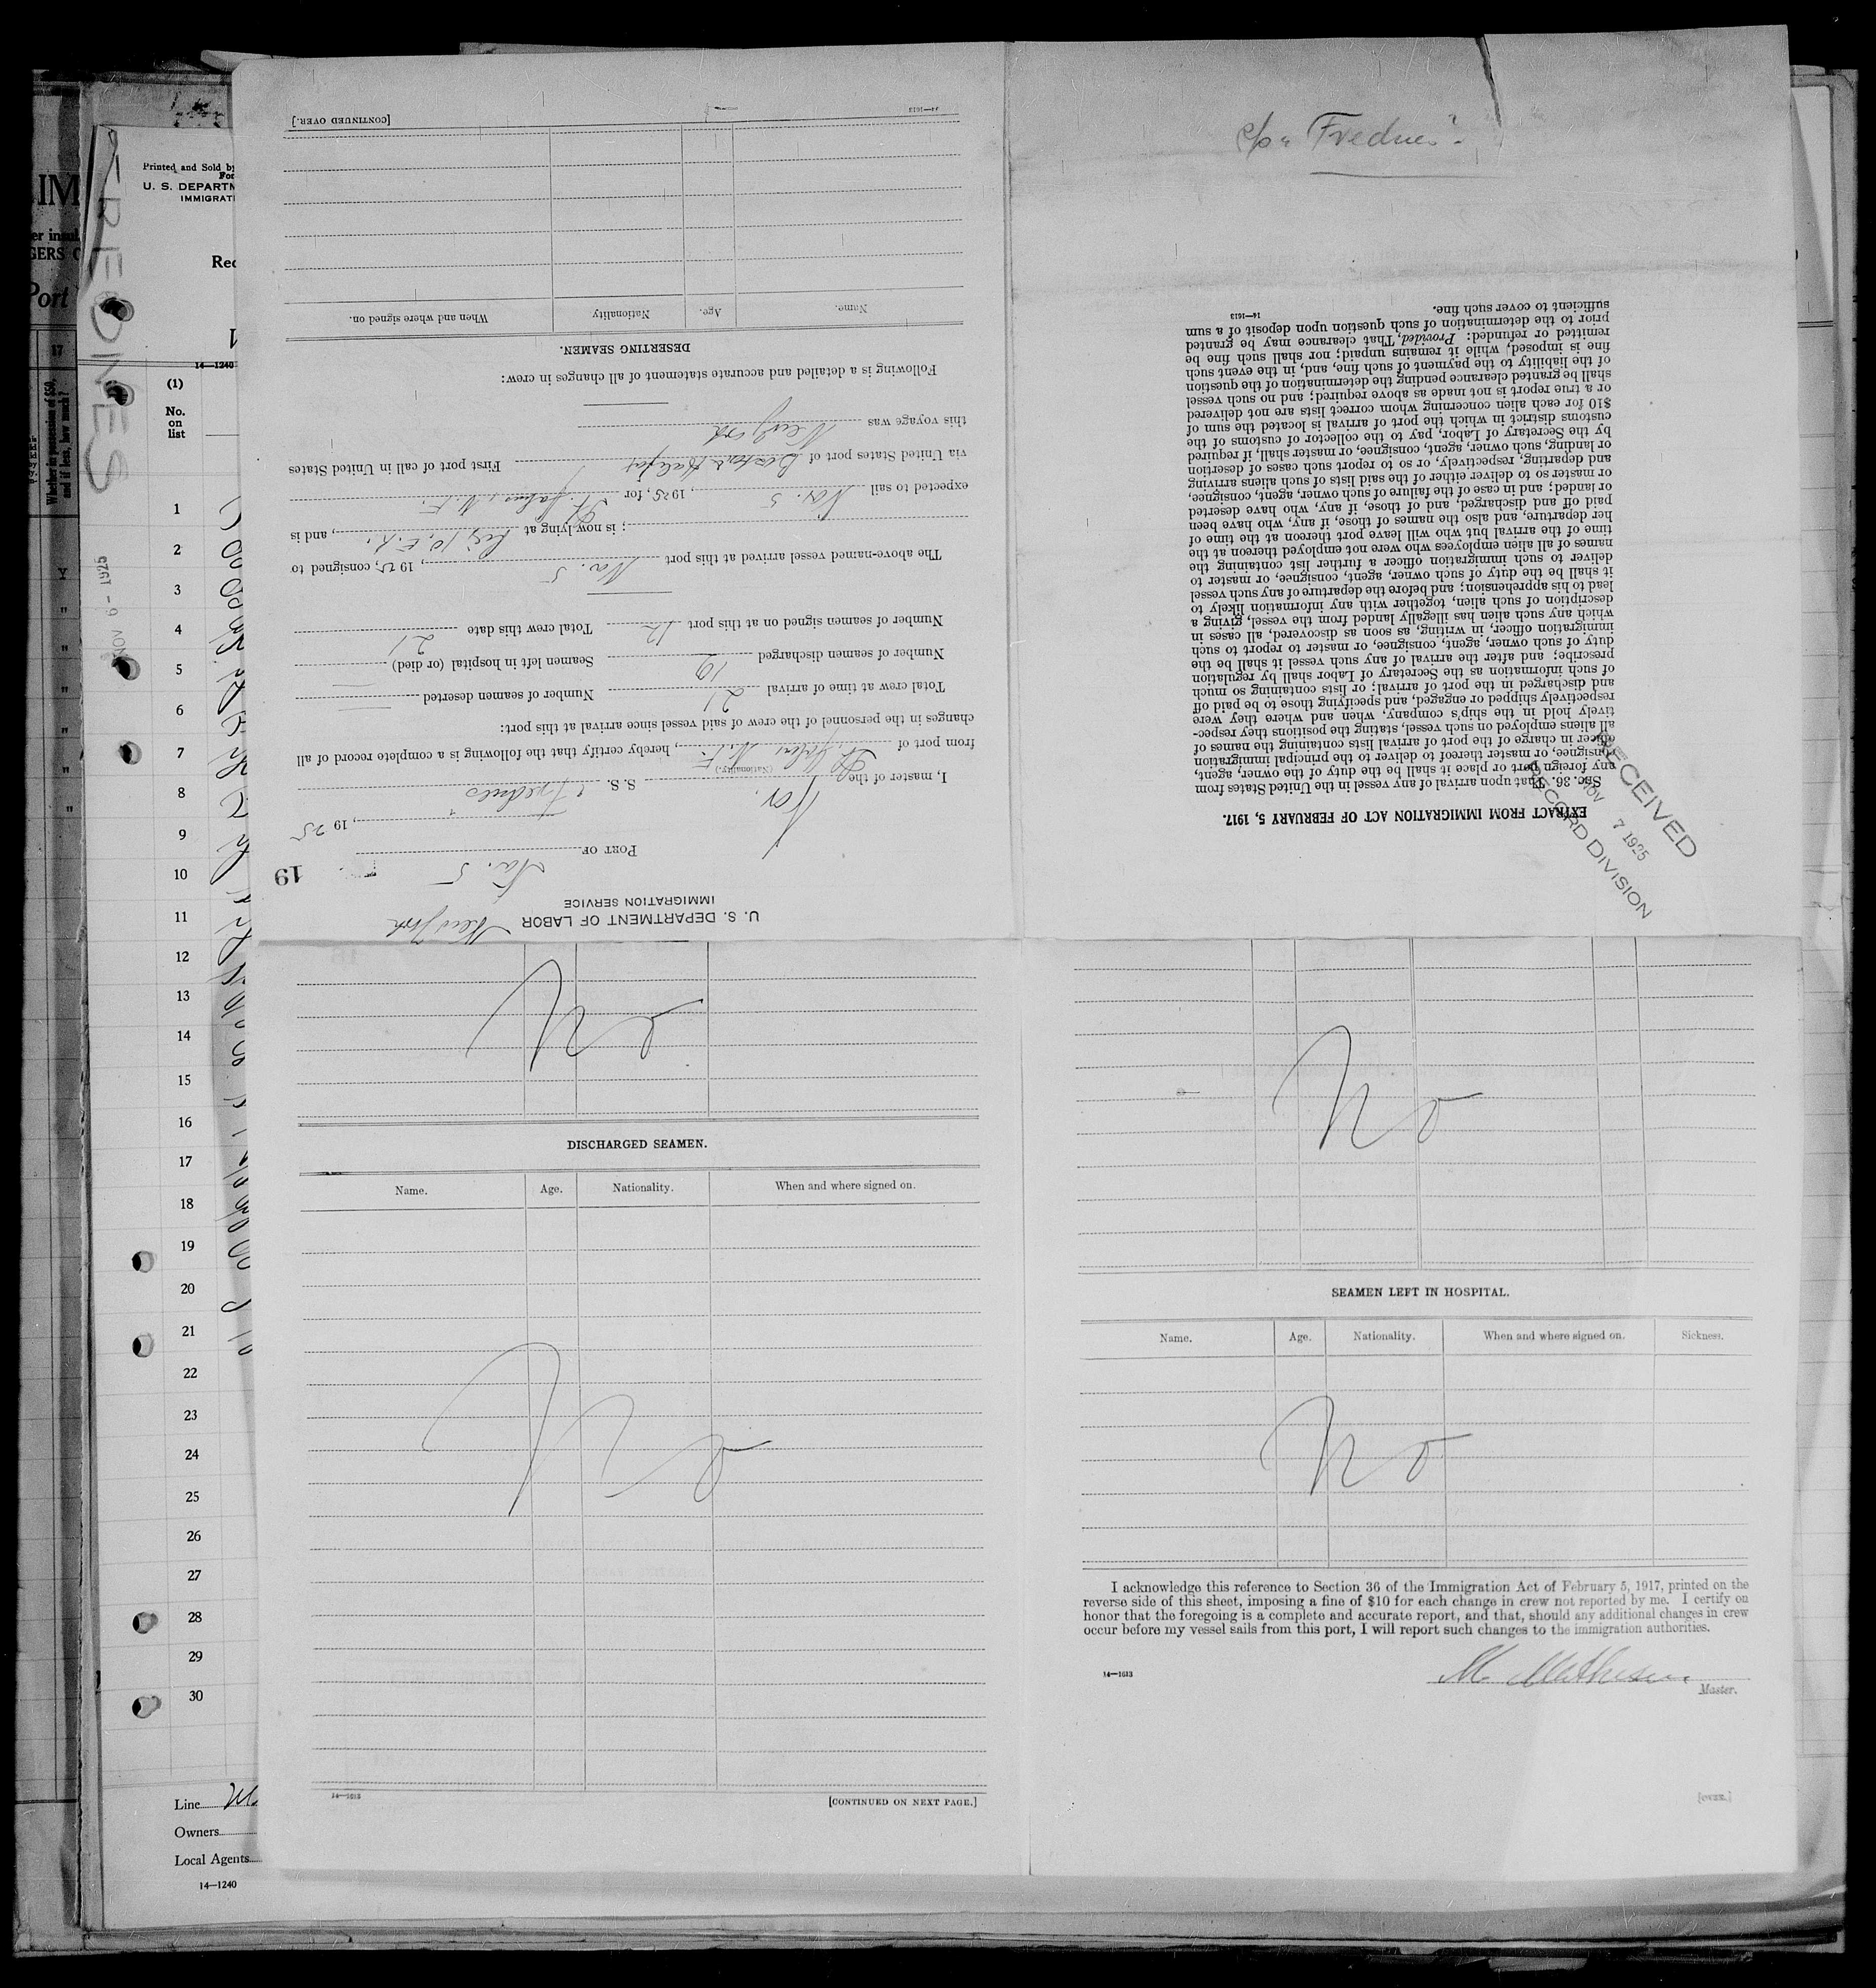 IM
er insul
GERS
Port
17
Whether in possession of $50,
and if less, how much?
FREDNES
NOV 6 - 1925
Printed and Sold by
For
U. S. DEPARTM
IMMIGRATI
Rec
14—1240
(1)
No.
on
list
1
2
3
4
5
6
7
8
9
10
11
12
13
14
15
16
17
18
19
20
21
22
23
24
25
26
27
28
29
30
Line
Owners
Local Agents
14—1240
19
U. S. DEPARTMENT OF LABOR
IMMIGRATION SERVICE
New York
PORT OF
Nov. 5, 1925
I, master of the Nor. S. S. "Frednes"
(Nationality.)
from port of St. Johns N. F., hereby certify that the following is a complete record of all
changes in the personnel of the crew of said vessel since arrival at this port:
Total crew at time of arrival 21 Number of seamen deserted
Number of seamen discharged Seamen left in hospital (or died)
Number of seamen signed on at this port 12 Total crew this date 21
The above-named vessel arrived at this port 5, 1925, consigned to
; is now lying at 10, E. R., and is
expected to sail Nov. 5, 1925, for St Johns, N. F.
via United States port of Boston Halifax First port of call in United States
this voyage was New York
Following is a detailed and accurate statement of all changes in crew:
DESERTING SEAMEN.
Name. Age. Nationality When and where signed on.
14—1613
[CONTINUED OVER.]
No
DISCHARGED SEAMEN.
Name. Age. Nationality. When and where signed on.
No
14—1613 [CONTINUED ON NEXT PAGE.]
EXTRACT FROM IMMIGRATION ACT OF FEBRUARY 5, 1917.
SEC. 36. That upon arrival of any vessel in the United States from
any foreign port or place it shall be the duty of the owner, agent,
consignee, or master thereof to deliver to the principal immigration
officer in charge of the port of arrival lists containing the names of
all aliens employed on such vessel, stating the positions they respec-
tively hold in the ship's company, when and where they were
respectively shipped or engaged, and specifying those to be paid off
and discharged in the port of arrival; or lists containing so much
of such information as the Secretary of Labor shall by regulation
prescribe; and after the arrival of any such vessel it shall be the
duty of such owner, agent, consignee, or master to report to such
immigration officer, in writing, as soon as discovered, all cases in
which any such alien has illegally landed from the vessel, giving a
description of such alien, together with any information likely to
lead to his apprehension; and before the departure of any such vessel
it shall be the duty of such owner, agent, consignee, or master to
deliver to such immigration officer a further list containing the
names of all alien employees who were not employed thereon at the
time of the arrival but who will leave port thereon at the time of
her departure, and also the names of those, if any, who have been
paid off and discharged, and of those, if any, who have deserted
or landed; and in case of the failure of such owner, agent, consignee,
or master so to deliver either of the said lists of such aliens arriving
and departing, respectively, or so to report such cases of desertion
or landing, such owner, agent, consignee, or master shall, if required
by the Secretary of Labor, pay to the collector of customs of the
customs district in which the port of arrival is located the sum of
$10 for each alien concerning whom correct lists are not delivered
or a true report is not made as above required; and no such vessel
shall be granted clearance pending the determination of the question
of the liability to the payment of such fine, and, in the event such
fine is imposed, while it remains unpaid; nor shall such fine be
remitted or refunded: Provided, That clearance may be granted
prior to the determination of such question upon deposit of a sum
sufficient to cover such fine.
14—1613
RECEIVED
NOV 7 1925
RECORD DIVISION
"Frednes".
No
SEAMEN LEFT IN HOSPITAL.
Name. Age. Nationality. When and where signed on. Sickness.
No
I acknowledge this reference to Section 36 of the Immigration Act of February 5, 1917, printed on the
reverse side of this sheet, imposing a fine of $10 for each change in crew not reported by me. I certify on
honor that the foregoing is a complete and accurate report, and that, should any additional changes in crew
occur before my vessel sails from this port, I will report such changes to the immigration authorities.
14—1613
M. Mathisen.
Master.
[OVER.]